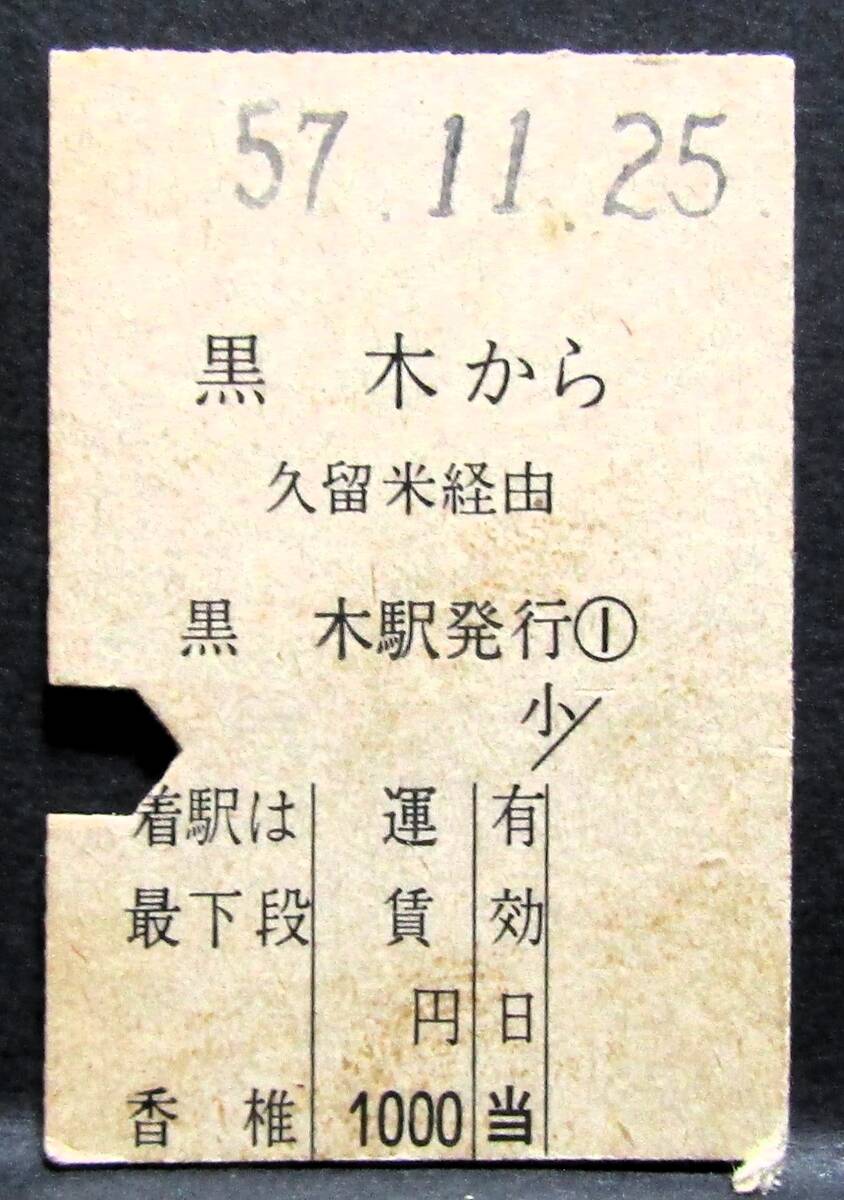 57.11.25.
黒 木から
久留米経由
黒 木駅発行①
小
着駅は 運 有
最下段 賃 効
円 日
香 椎 1000 当